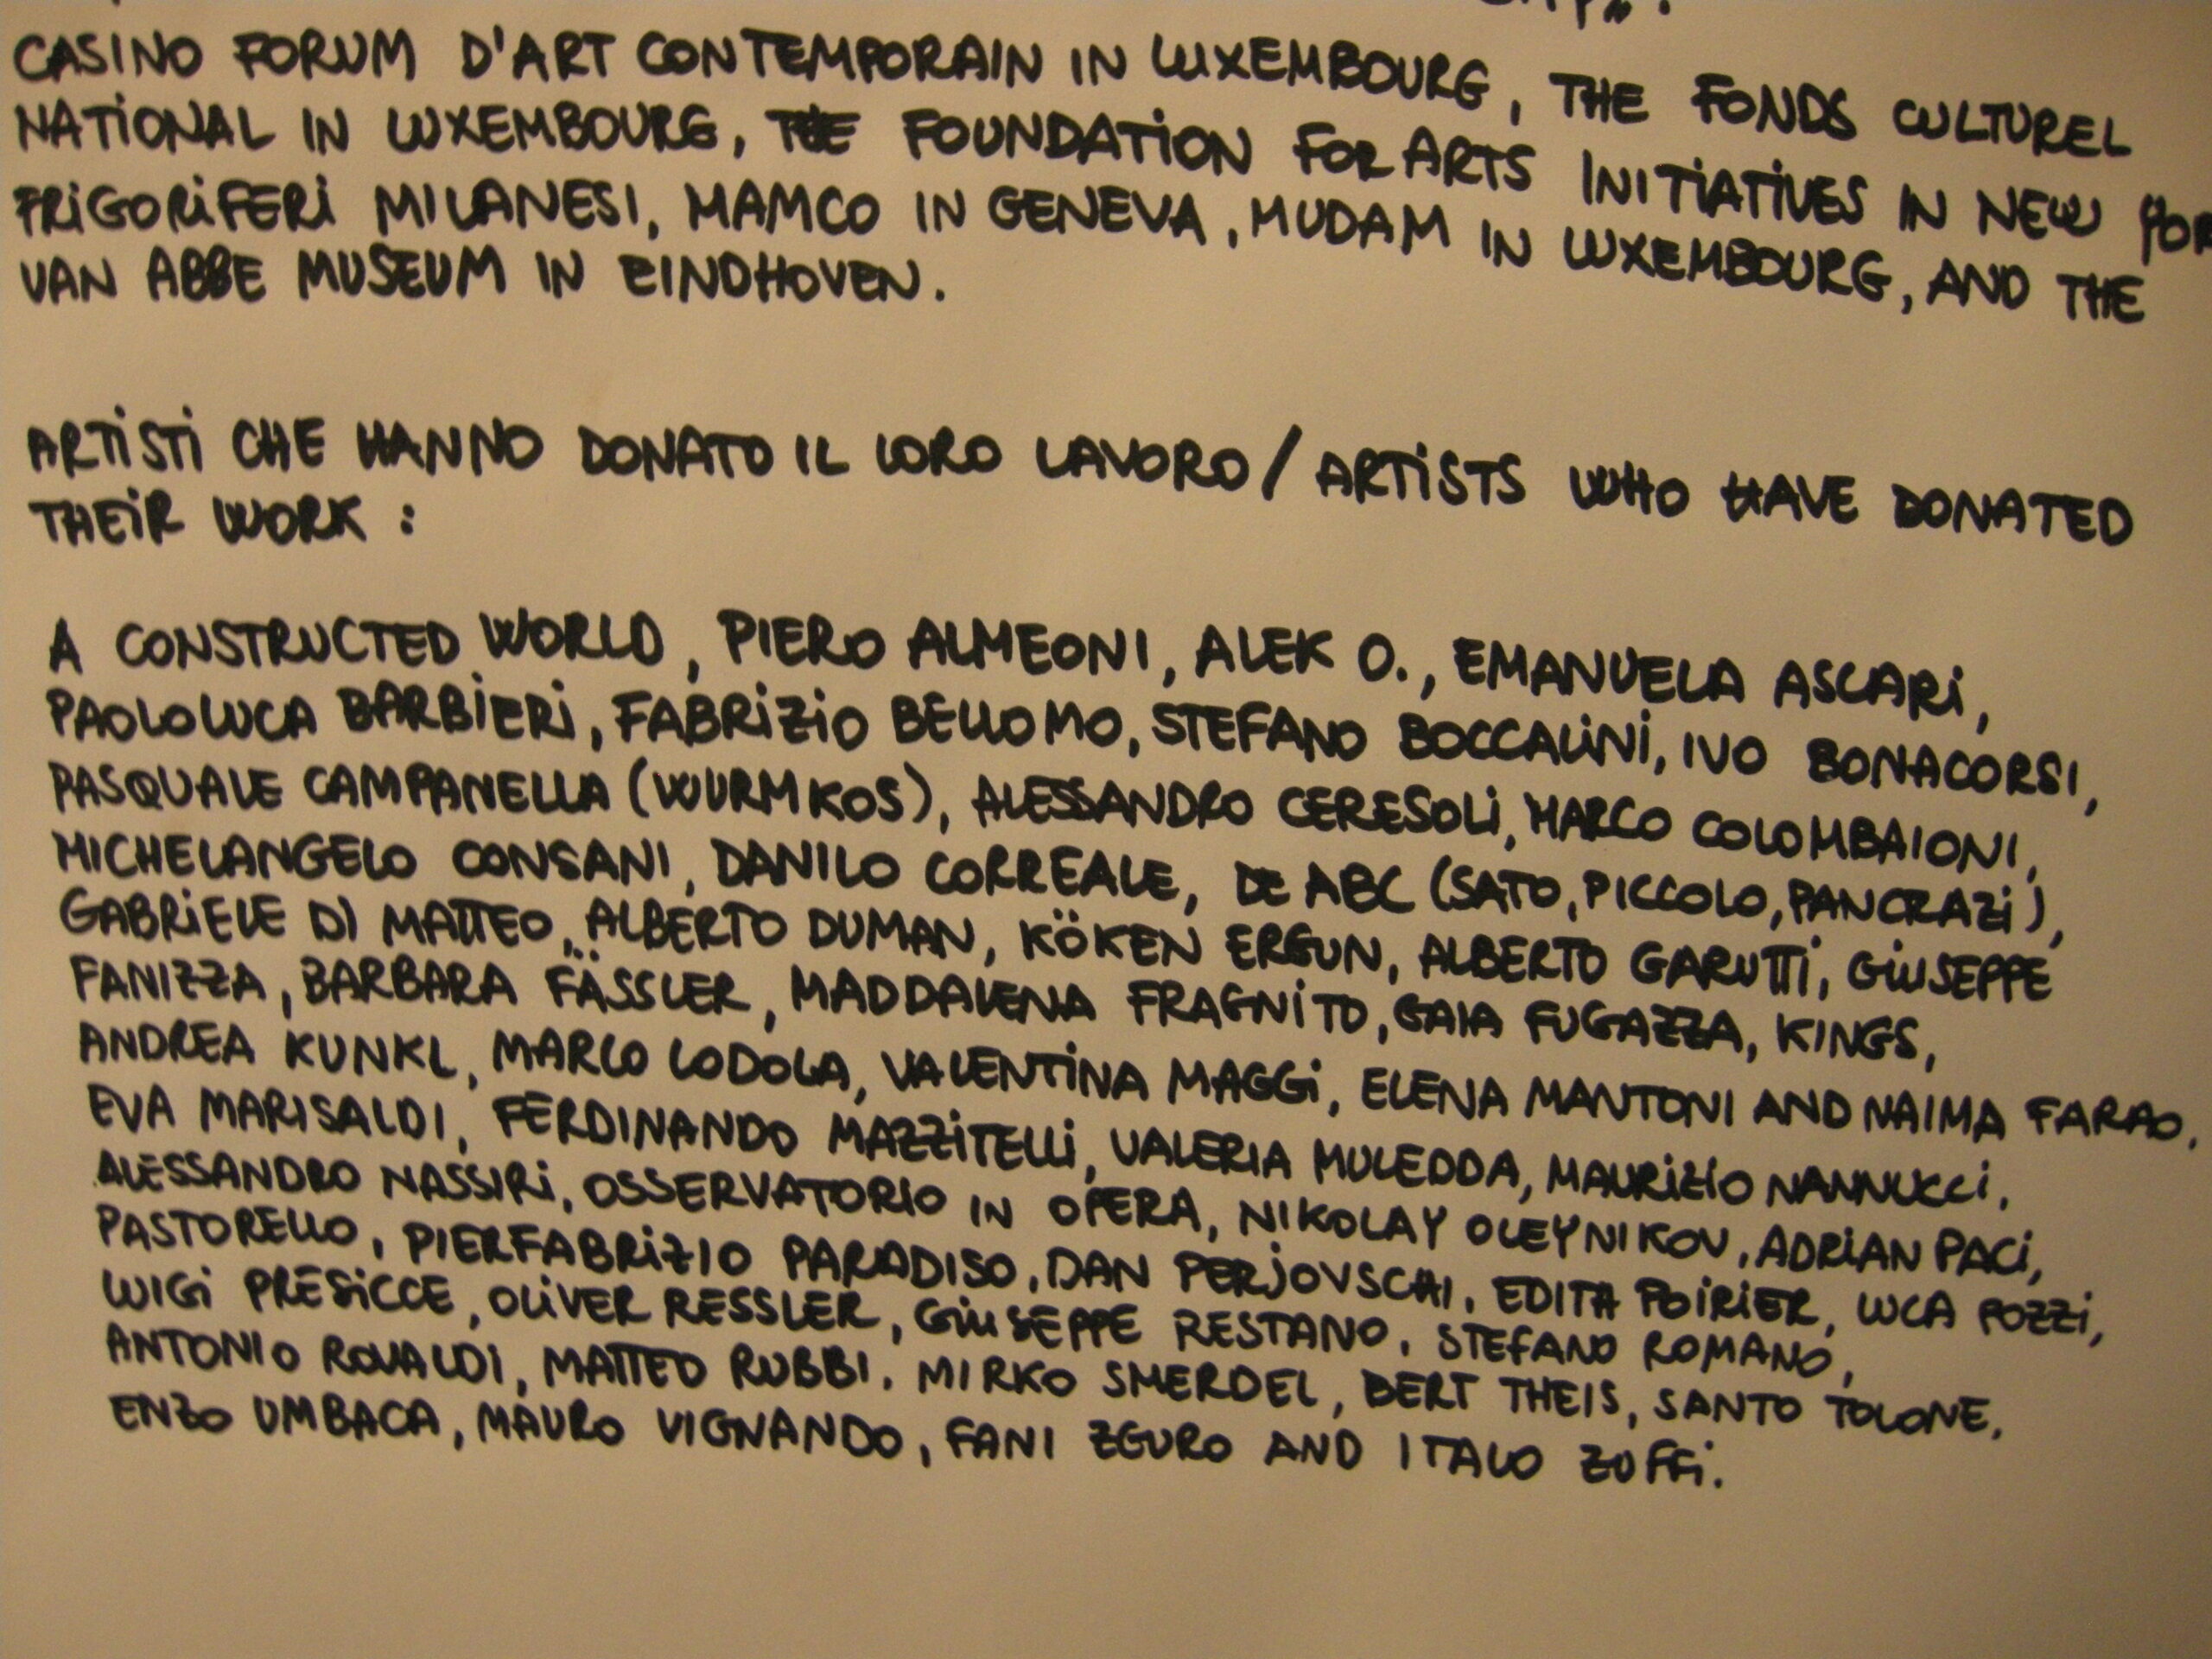 CASINO FORUM D'ART CONTEMPORAIN IN LUXEMBOURG, THE FONDS CULTUREL
NATIONAL IN LUXEMBOURG, THE FOUNDATION FOR ARTS INITIATIVES IN NEW YOR
FRIGORIFERI MILANESI, MAMCO IN GENEVA, MUDAM IN LUXEMBOURG, AND THE
VAN ABBE MUSEUM IN EINDHOVEN.
ARTISTI CHE HANNO DONATO IL LORO LAVORO / ARTISTS WHO HAVE DONATED
THEIR WORK :
A CONSTRUCTED WORLD, PIERO ALMEONI, ALEK O., EMANUELA ASCARI,
PAOLOLUCA BARBIERI, FABRIZIO BELLOMO, STEFANO BOCCALINI, IVO BONACORSI,
PASQUALE CAMPANELLA (WURMKOS), ALESSANDRO CERESOLI, MARCO COLOMBAIONI,
MICHELANGELO CONSANI, DANILO CORREALE, DE ABC (SATO, PICCOLO, PANCRAZI),
GABRIELE DI MATTEO, ALBERTO DUMAN, KÖKEN ERGUN, ALBERTO GARUTTI, GIUSEPPE
FANIZZA, BARBARA FÄSSLER, MADDALENA FRAGNITO, GAIA FUGAZZA, KINGS,
ANDREA KUNKL, MARCO LODOLA, VALENTINA MAGGI, ELENA MANTONI AND NAIMA FARAO,
EVA MARISALDI, FERDINANDO MAZZITELLI, VALERIA MULEDDA, MAURIZIO NANNUCCI,
ALESSANDRO NASSIRI, OSSERVATORIO IN OPERA, NIKOLAY OLEYNIKOV, ADRIAN PACI,
PASTORELLO, PIERFABRIZIO PARADISO, DAN PERJOVSCHI, EDITH POIRIER, LUCA POZZI,
LUIGI PRESICCE, OLIVER RESSLER, GIUSEPPE RESTANO, STEFANO ROMANO,
ANTONIO ROVALDI, MATTEO RUBBI, MIRKO SMERDEL, BERT THEIS, SANTO TOLONE,
ENZO UMBACA, MAURO VIGNANDO, FANI ZGURO AND ITALO ZUFFI.